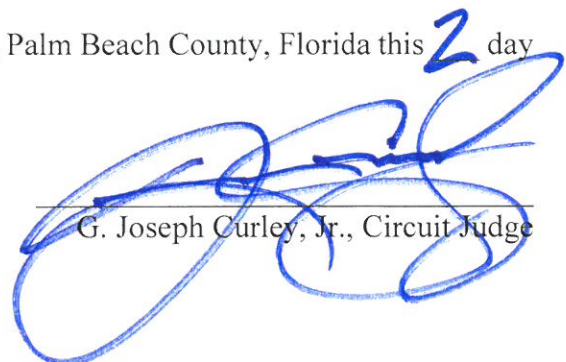 Palm Beach County, Florida this 2 day
G. Joseph Curley, Jr., Circuit Judge